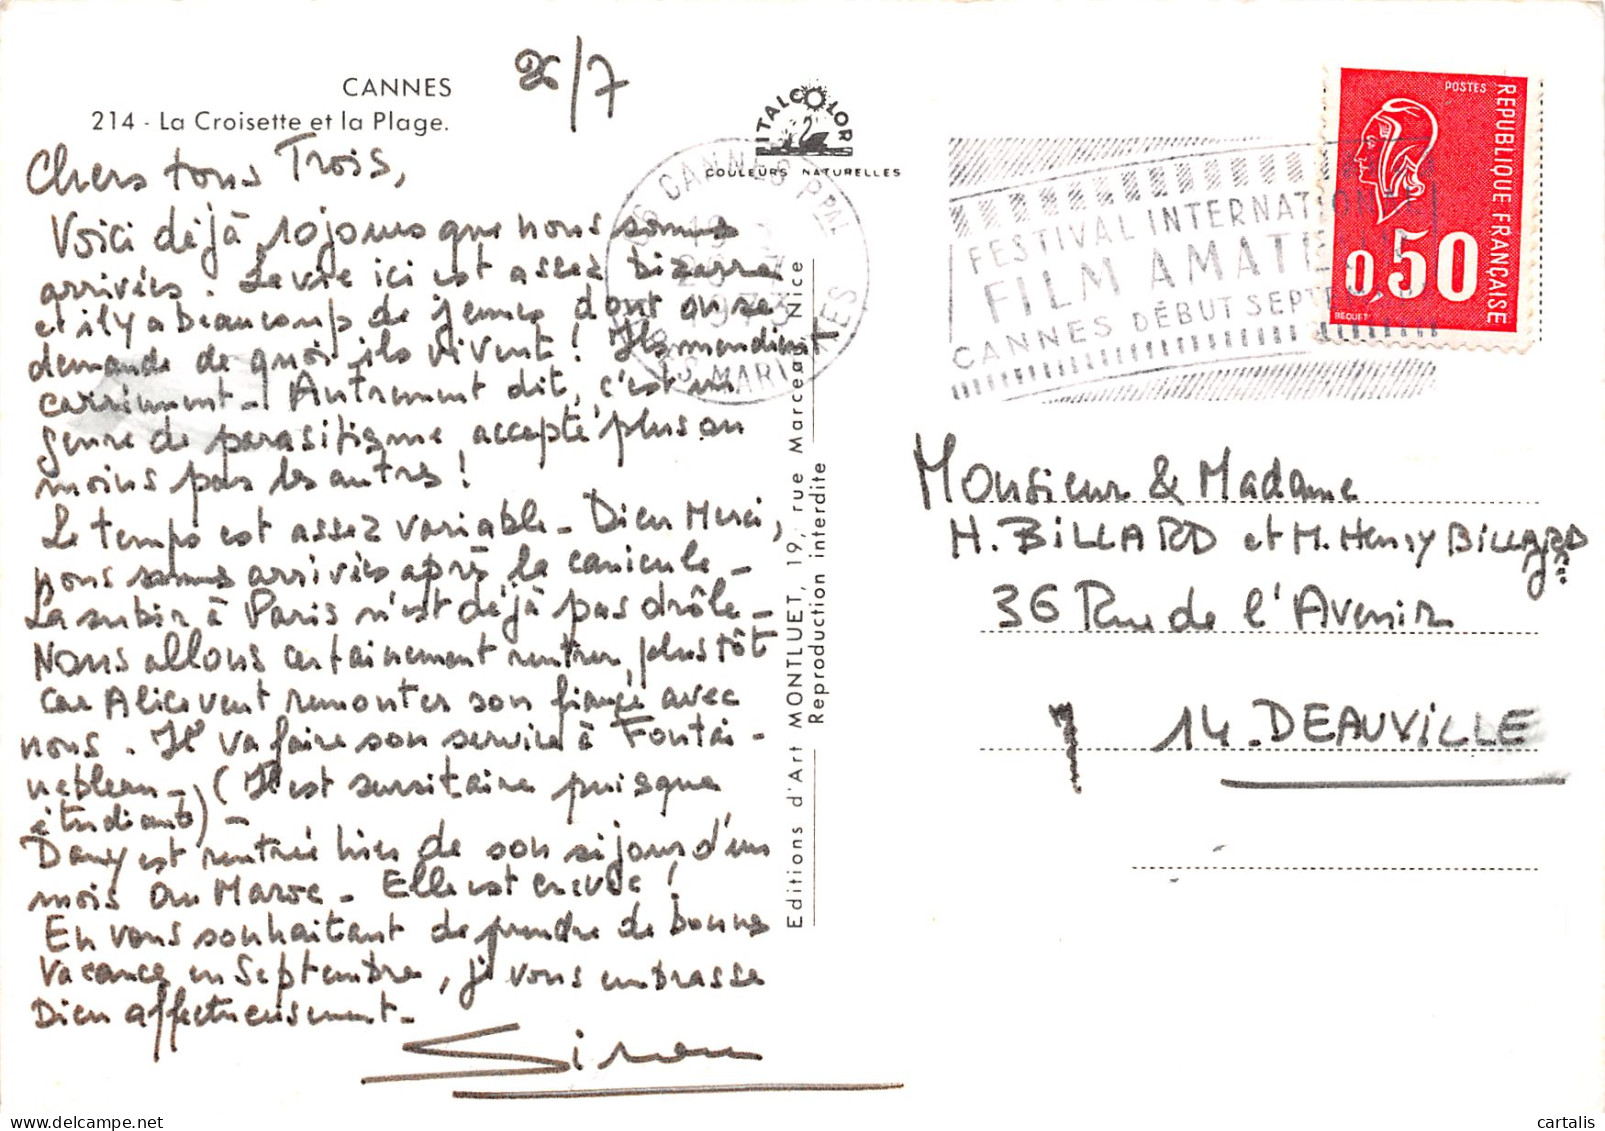 CANNES
214 - La Croisette et la Plage.
26/7
ITALCOLOR
COULEURS NATURELLES
Chers tous Trois,
Voici déjà 10 jours que nous sommes
arrivés. La vie ici est assez bizarre
et il y a beaucoup de jeunes dont on se
demande de quoi ils vivent ! Ils mendient
carrément - Autrement dit, c'est un
genre de parasitisme, accepté plus ou
moins par les autres !
Le temps est assez variable - Dieu Merci,
nous sommes arrivés après la canicule -
La subir à Paris n'est déjà pas drôle -
Nous allons certainement rentrer plus tôt
car Alice veut remonter son fiancé avec
nous. Il va faire son service à Fontai-
nebleau - (Il est sursitaire puisque
étudiant) -
Dany est rentrée hier de son séjour d'un
mois au Maroc - Elle est crevée !
En vous souhaitant de prendre de bonnes
vacances en Septembre, je vous embrasse
bien affectueusement -
Simon
Editions d'Art MONTLUET, 19, rue Marceau, Nice
Reproduction interdite
06 CANNES PPAL
1973
ALPES MARITIMES
FESTIVAL INTERNATIONAL
FILM AMATEUR
CANNES DÉBUT SEPTEMBRE
POSTES
REPUBLIQUE FRANÇAISE
0,50
BEQUET
Monsieur & Madame
H. BILLARD et M. Henry BILLARD
36 Rue de l'Avenir
14 - DEAUVILLE
cartalis